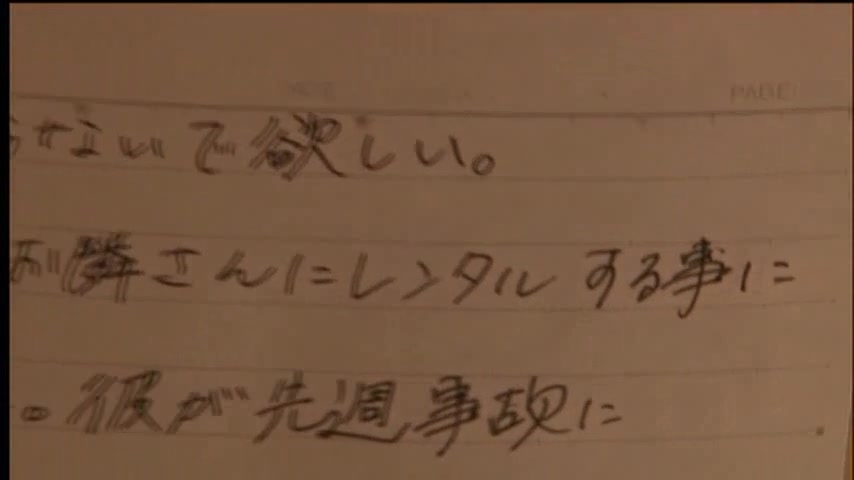 PAGE
せないで欲しい。
お隣さんにレンタルする事に
。彼が先週事故に